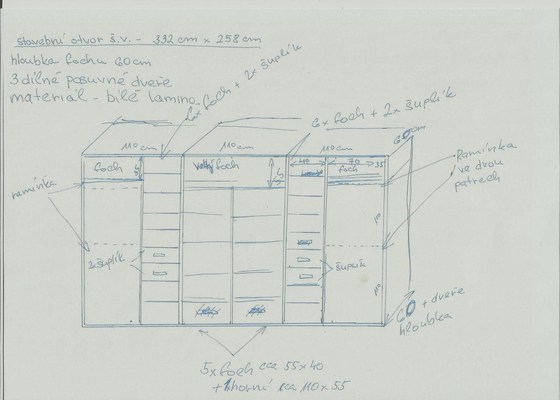 stavební otvor š.v. - 332 cm x 258 cm
hloubka fochu 60 cm
3 dílné posuvné dveře
materiál - bílé lamino
6x foch + 2x šuplík
6x foch + 2x šuplík
60 cm
110 cm
110 cm
110 cm
foch
35
foch
55
40
70
35
foch
ramínka
Ramínka
ve dvou
patrech
2x šuplík
šuplík
60 + dveře
hloubka
5x foch cca 55x40
+ horní ca 110 x 55